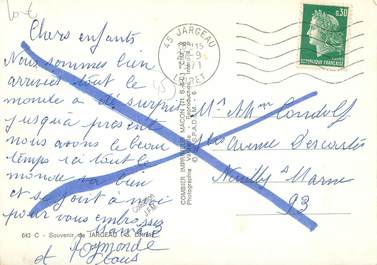 Chers enfants
Nous sommes bien
arrivés tout le
monde a été surpris
jusqu'à présent
nous avons le beau
temps ici tout le
monde va bien
et se joint à moi
pour vous embrasser
Raymonde
et tous
45 JARGEAU
15
9
1971
LOIRET
0,30
REPUBLIQUE FRANÇAISE
COMBIER IMPRIMEUR MACON
Mr Mme
Avenue Descartes
Neuilly s/ Marne
93
643 C - Souvenir de JARGEAU (45, Loiret)